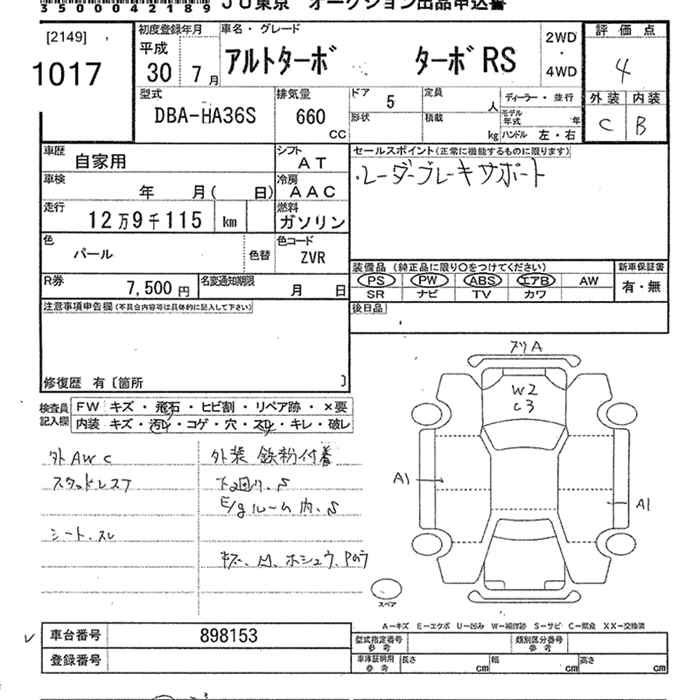 35000042189 JU東京 オークション出品申込書
[2149]
1017
初度登録年月
平成
30年 7月
車名・グレード
アルトターボ ターボRS
2WD
・
4WD
評価点
4
外装 内装
C B
型式
DBA-HA36S
排気量
660
CC
ドア 5
形状
定員 人
積載 kg
ディーラー・並行
モデル年式 年
ハンドル 左・右
車歴
自家用
シフト
AT
車検
年 月( 日)
冷房
AAC
走行
12万9千115 km
燃料
ガソリン
色
パール
色替
色コード
ZVR
R券
7,500円
名変通知期限
月 日
セールスポイント(正常に機能するものに限ります)
・レーダーブレーキサポート
装備品(純正品に限り○をつけてください)
PS PW ABS エアB AW
SR ナビ TV カワ
新車保証書
有・無
後日品
注意事項申告欄(不具合内容等は具体的に記入して下さい)
修復歴 有〔箇所 〕
検査員
記入欄
FW キズ・飛石・ヒビ割・リペア跡・×要
内装 キズ・汚レ・コゲ・穴・スレ・キレ・破レ
外AWC
スタッドレス7
シート.スレ
外装 鉄粉付着
下2回り.S
E/gルーム内.S
キズ.凹.ホシュウ.Pのう
スリA
W2
C3
A1
A1
スペア
A-キズ E-エクボ U-凹み W-補修跡 S-サビ C-腐食 XX-交換済
車台番号 898153
登録番号
型式指定番号
参考
類別区分番号
参考
車庫証明用
参考
長さ cm
幅 cm
高さ cm